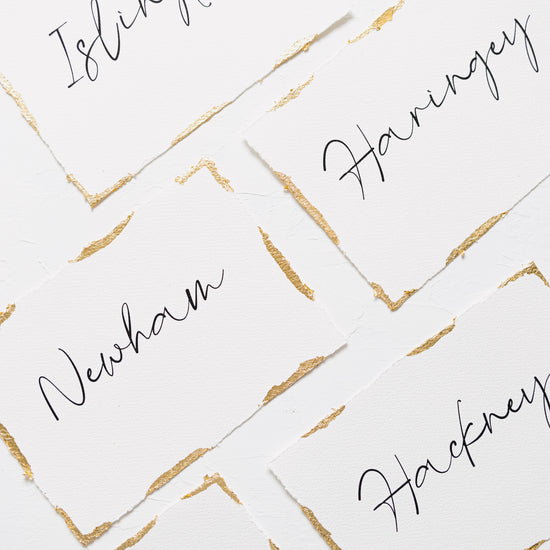 Isling
Haringey
Newham
Hackney